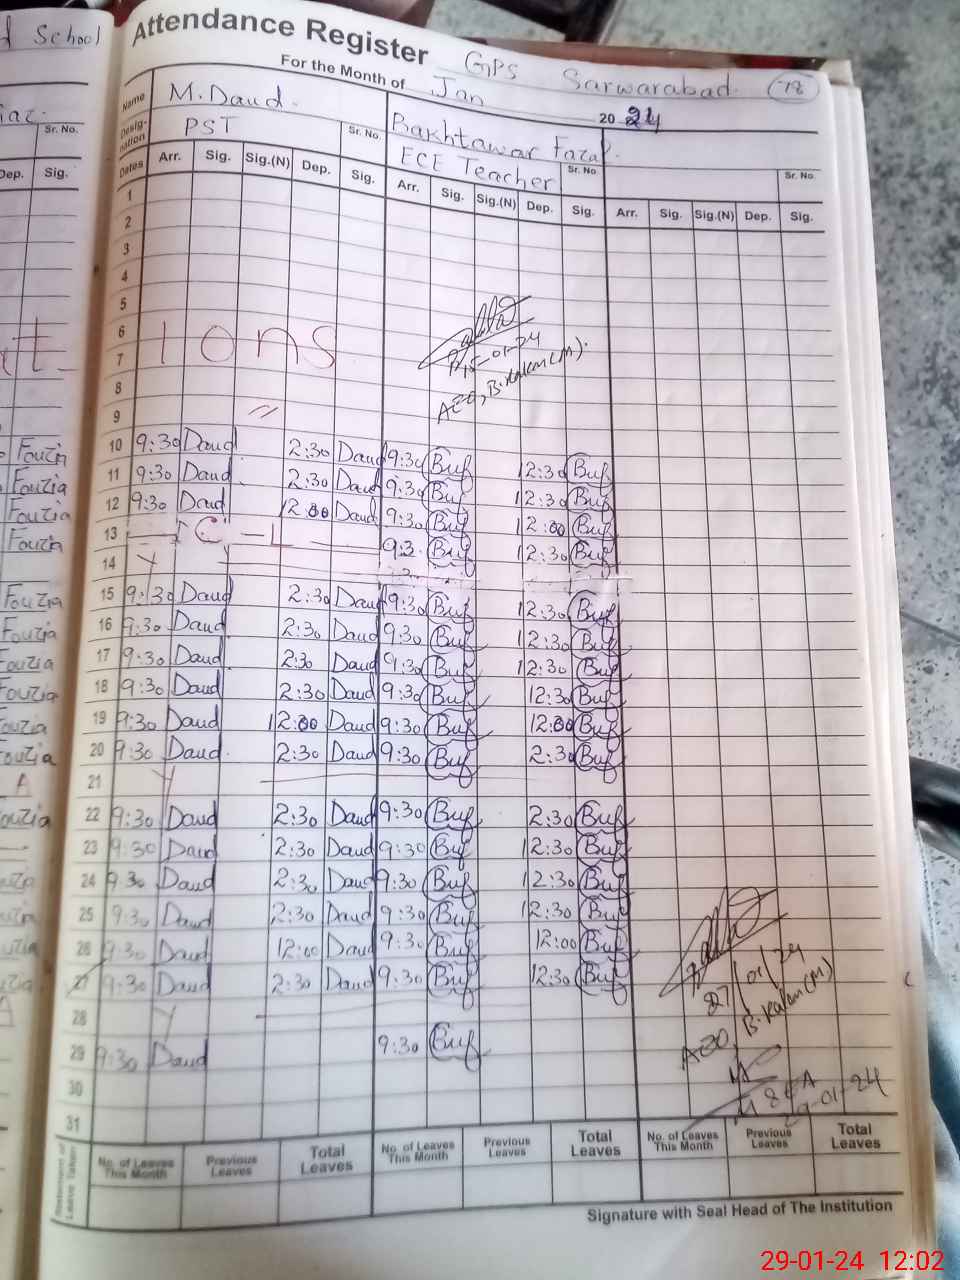 d School
Attendance Register GPS Sarwarabad. 78
For the Month of Jan 2024
Name M. Daud. Bakhtawar Fazal.
Designation PST Sr. No. ECE Teacher Sr. No. Sr. No.
Sr. No.
Dep. Sig.
Dates Arr. Sig. Sig.(N) Dep. Sig. Arr. Sig. Sig.(N) Dep. Sig. Arr. Sig. Sig.(N) Dep. Sig.
1
2
3
4
5
6 ions
7 15-01-24
8 AEO, B.Kalan(M).
9 "
Fouzia 10 9:30 Daud 2:30 Daud 9:30 Buf 12:30 Buf
Fouzia 11 9:30 Daud 2:30 Daud 9:30 Buf 12:30 Buf
Fouzia 12 9:30 Daud 12:00 Daud 9:30 Buf 12:00 Buf
Fouzia 13 C-L 9:3 Buf 12:30 Buf
14
Fouzia 15 9:30 Daud 2:30 Daud 9:30 Buf 12:30 Buf
Fouzia 16 9:30 Daud 2:30 Daud 9:30 Buf 12:30 Buf
Fouzia 17 9:30 Daud 2:30 Daud 9:30 Buf 12:30 Buf
Fouzia 18 9:30 Daud 2:30 Daud 9:30 Buf 12:30 Buf
Fouzia 19 9:30 Daud 12:00 Daud 9:30 Buf 12:00 Buf
Fouzia 20 9:30 Daud. 2:30 Daud 9:30 Buf 2:30 Buf
A 21
Fouzia 22 9:30 Daud 2:30 Daud 9:30 Buf 2:30 Buf
23 9:30 Daud 2:30 Daud 9:30 Buf 12:30 Buf
24 9:30 Daud 2:30 Daud 9:30 Buf 12:30 Buf
25 9:30 Daud 2:30 Daud 9:30 Buf 12:30 Buf
26 9:30 Daud 12:00 Daud 9:30 Buf 12:00 Buf
27 9:30 Daud 2:30 Daud 9:30 Buf 12:30 Buf
27/01/24
28
AEO, B.Kalan(M)
29 9:30 Daud 9:30 Buf
30
MEA
29-01-24
31
Statement of Leave Taken No. of Leaves This Month Previous Leaves Total Leaves No. of Leaves This Month Previous Leaves Total Leaves No. of Leaves This Month Previous Leaves Total Leaves
Signature with Seal Head of The Institution
29-01-24 12:02